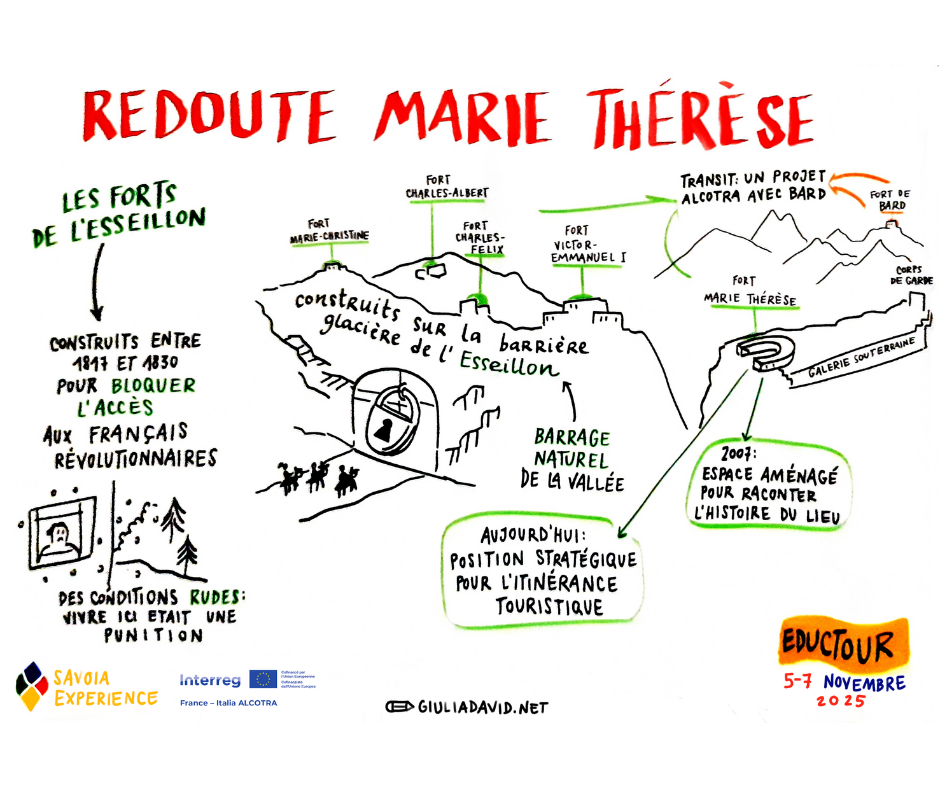 REDOUTE MARIE THÉRÈSE
LES FORTS
DE L'ESSEILLON
CONSTRUITS ENTRE
1817 ET 1830
POUR BLOQUER
L'ACCÈS
AUX FRANÇAIS
RÉVOLUTIONNAIRES
DES CONDITIONS RUDES:
VIVRE ICI ETAIT UNE
PUNITION
FORT
MARIE-CHRISTINE
FORT
CHARLES-ALBERT
FORT
CHARLES-
FELIX
FORT
VICTOR-
EMMANUEL I
construits sur la barrière
glacière de l'Esseillon
BARRAGE
NATUREL
DE LA VALLÉE
TRANSIT: UN PROJET
ALCOTRA AVEC BARD
FORT DE
BARD
CORPS
DE GARDE
FORT
MARIE THÉRÈSE
GALERIE SOUTERRAINE
2007:
ESPACE AMÉNAGÉ
POUR RACONTER
L'HISTOIRE DU LIEU
AUJOURD'HUI:
POSITION STRATÉGIQUE
POUR L'ITINÉRANCE
TOURISTIQUE
SAVOIA
EXPERIENCE
Interreg
Cofinancé par
l'Union Européenne
Cofinanziato
dall'Unione Europea
France – Italia ALCOTRA
GIULIADAVID.NET
EDUCTOUR
5-7 NOVEMBRE
2025